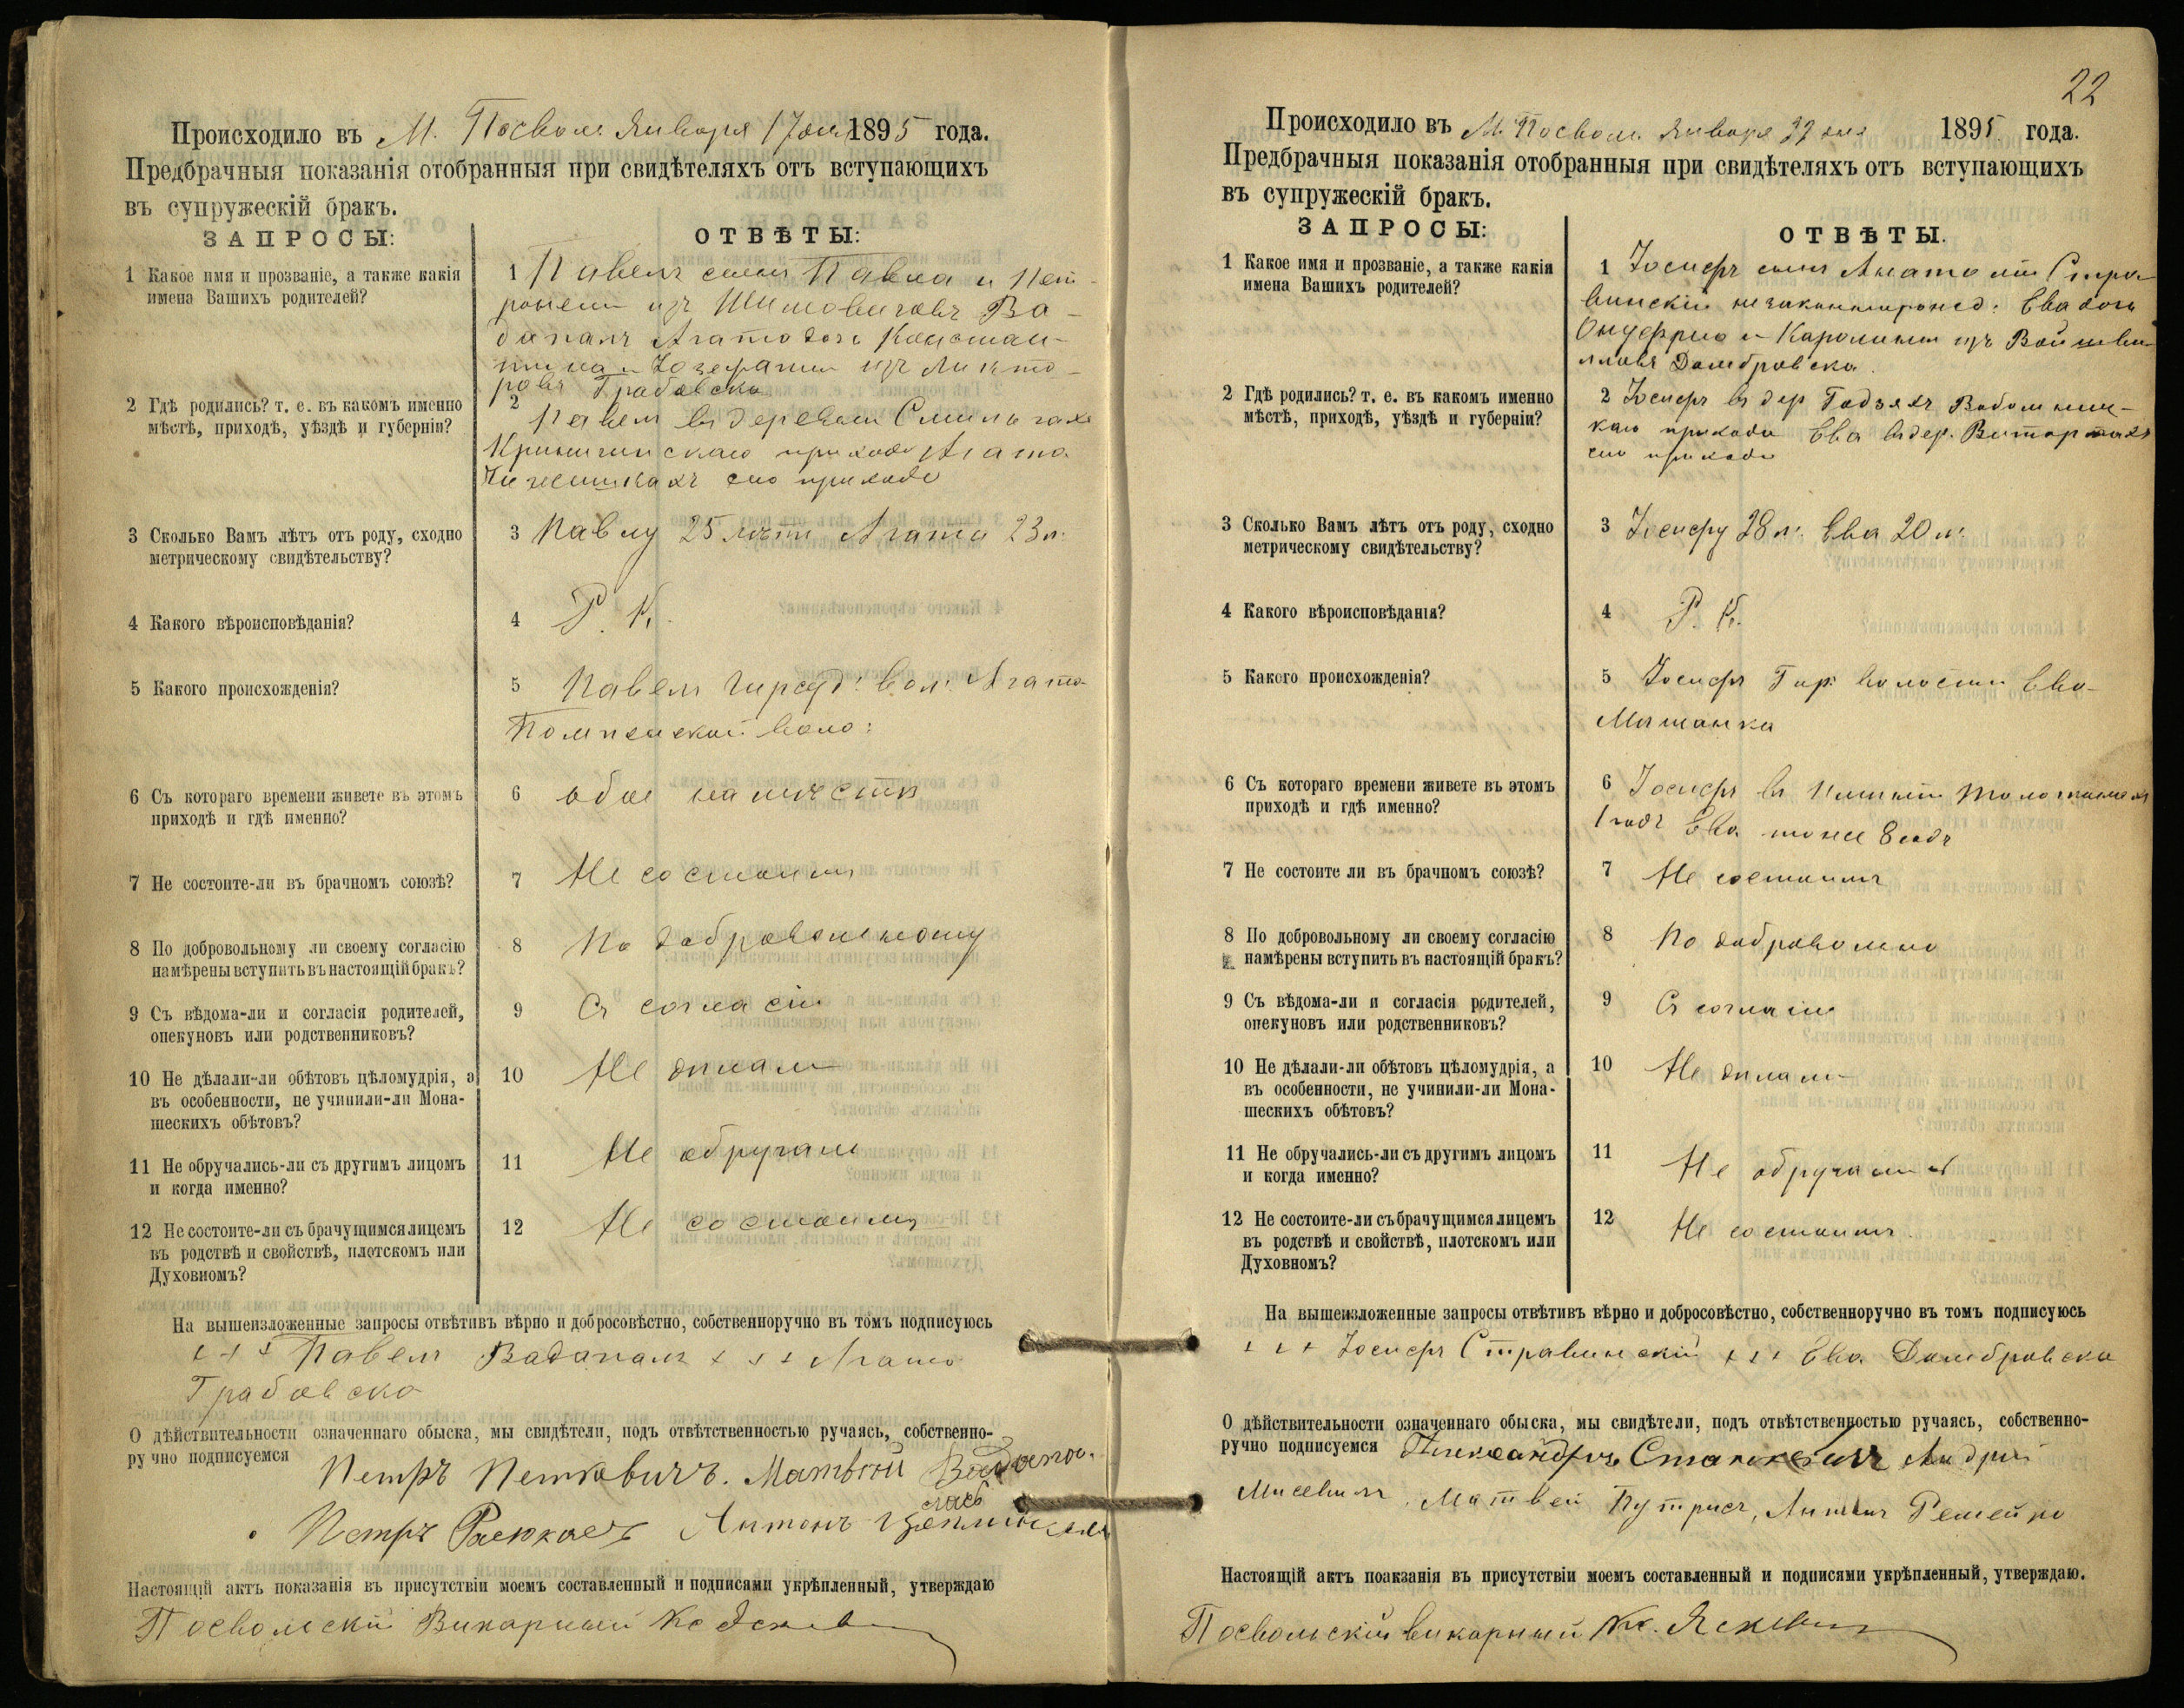 Происходило въ М. Посволи Января 17 дня 1895 года.
Предбрачныя показанія отобранныя при свидѣтеляхъ отъ вступающихъ
въ супружескій бракъ.
ЗАПРОСЫ:
ОТВѢТЫ:
1 Какое имя и прозваніе, а также какія
имена Вашихъ родителей?
1 Павелъ сынъ Павла и Пет-
ронели изъ Шимовичовъ Ва-
допалъ Агата дочь Констан-
тина и Іозефати изъ
Грабовска
2 Гдѣ родились? т. е. въ какомъ именно
мѣстѣ, приходѣ, уѣздѣ и губерніи?
2 Павелъ въ деревни Смильгахъ
Криничинскаго прихода Агата
сего прихода
3 Сколько Вамъ лѣтъ отъ роду, сходно
метрическому свидѣтельству?
3 Павлу 25 лѣтъ Агата 23 л.
4 Какого вѣроисповѣданія?
4 Р. К.
5 Какого происхожденія?
5 Павелъ вол: Агата
Помпенской воло:
6 Съ котораго времени живете въ этомъ
приходѣ и гдѣ именно?
6 обое на мѣстѣ
7 Не состоите-ли въ брачномъ союзѣ?
7 Не состоимъ
8 По добровольному ли своему согласію
намѣрены вступить въ настоящій бракъ?
8 По добровольному
9 Съ вѣдома-ли и согласія родителей,
опекуновъ или родственниковъ?
9 Съ согласія
10 Не дѣлали-ли обѣтовъ цѣломудрія, а
въ особенности, не учинили-ли Мона-
шескихъ обѣтовъ?
10 Не дѣлали
11 Не обручались-ли съ другимъ лицомъ
и когда именно?
11 Не обручали
12 Не состоите-ли съ брачущимся лицемъ
въ родствѣ и свойствѣ, плотскомъ или
Духовномъ?
12 Не состоимъ
На вышеизложенные запросы отвѣтивъ вѣрно и добросовѣстно, собственноручно въ томъ подписуюсь
+++ Павелъ Вадапалъ +++ Агата
Грабовска
О дѣйствительности означеннаго обыска, мы свидѣтели, подъ отвѣтственностью ручаясь, собственно-
ручно подписуемся Петръ Петкевичъ. Матвѣй
Петръ Антонъ
Настоящій актъ показанія въ присутствіи моемъ составленный и подписями укрѣпленный, утверждаю
Посвольскій Викарный Кс Яскевич
22
Происходило въ М. Посволи Января 1895 года.
Предбрачныя показанія отобранныя при свидѣтеляхъ отъ вступающихъ
въ супружескій бракъ.
ЗАПРОСЫ:
ОТВѢТЫ.
1 Какое имя и прозваніе, а также какія
имена Вашихъ родителей?
1 Іосифъ сынъ Анатоліи Стра-
винскій незаконнорожд: Ева дочь
Онуфрія и Каролины изъ
Домбровска.
2 Гдѣ родились? т. е. въ какомъ именно
мѣстѣ, приходѣ, уѣздѣ и губерніи?
2 Іосифъ въ дер
прихода Ева въ дер.
сего прихода
3 Сколько Вамъ лѣтъ отъ роду, сходно
метрическому свидѣтельству?
3 Іосифу 28 л. Ева 20 л.
4 Какого вѣроисповѣданія?
4 Р. К.
5 Какого происхожденія?
5 Іосифъ Гир: волости Ева
Мѣщанка
6 Съ котораго времени живете въ этомъ
приходѣ и гдѣ именно?
6 Іосифъ въ
1 годъ Ева тоже 8 годъ
7 Не состоите ли въ брачномъ союзѣ?
7 Не состоимъ
8 По добровольному ли своему согласію
намѣрены вступить въ настоящій бракъ?
8 По добровольно
9 Съ вѣдома-ли и согласія родителей,
опекуновъ или родственниковъ?
9 Съ согласія
10 Не дѣлали-ли обѣтовъ цѣломудрія, а
въ особенности, не учинили-ли Мона-
шескихъ обѣтовъ?
10 Не дѣлали
11 Не обручались-ли съ другимъ лицомъ
и когда именно?
11 Не обручались
12 Не состоите-ли съ брачущимся лицемъ
въ родствѣ и свойствѣ, плотскомъ или
Духовномъ?
12 Не состоимъ
На вышеизложенные запросы отвѣтивъ вѣрно и добросовѣстно, собственноручно въ томъ подписуюсь
+++ Іосифъ Стравинскій +++ Ева Домбровска
О дѣйствительности означеннаго обыска, мы свидѣтели, подъ отвѣтственностью ручаясь, собственно-
ручно подписуемся Александръ Станкевичъ Андрей
Мисевичъ, Матвей Путрисъ, Антонъ Ремейко
Настоящій актъ поаказанія въ присутствіи моемъ составленный и подписями укрѣпленный, утверждаю.
Посвольскій викарный Кс. Яскевич